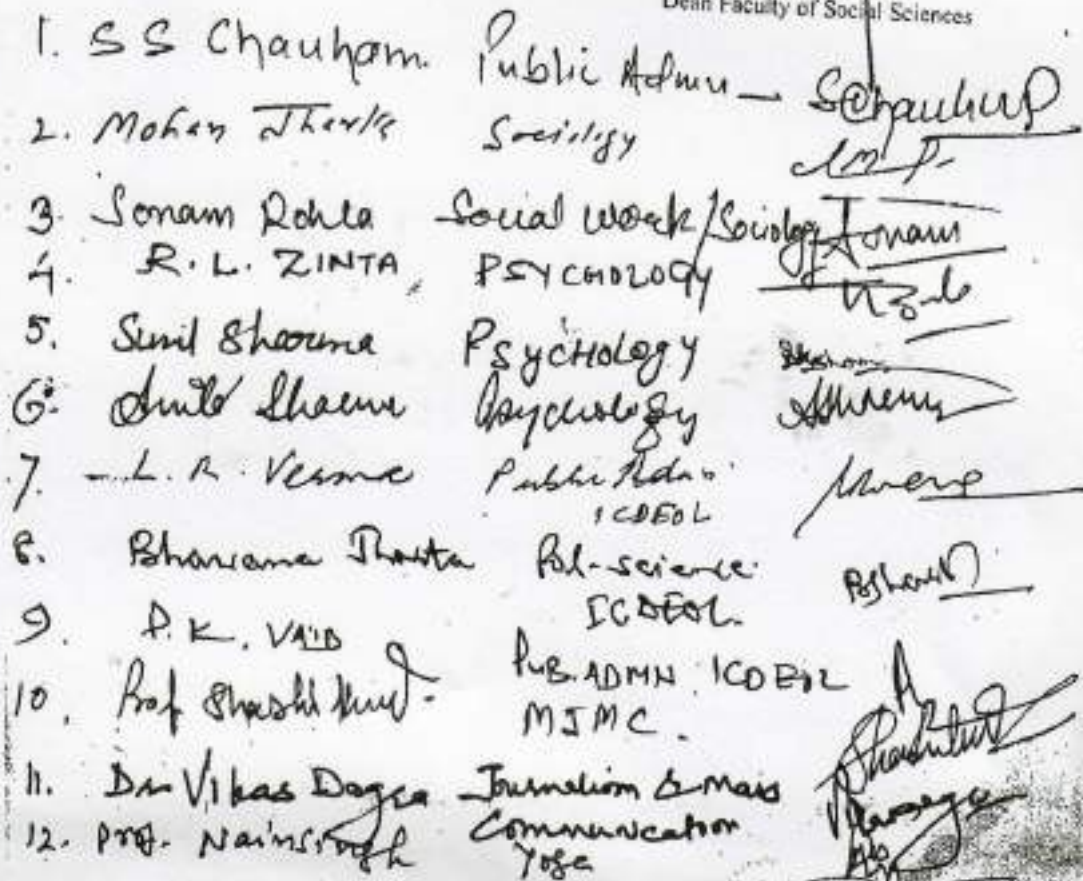 Dean Faculty of Social Sciences
1. S S Chauham. Public Admn
2. Mohan Sociology
3. Sonam Rohla Social Work/Sociology Sonam
4. R.L. ZINTA, PSYCHOLOGY
5. Sunil Sharma PSYCHOLOGY
6. Sharma Psychology
7. L. R. Verma Public Admn
ICDEOL
8. Bhawana Jharta Pol-science
ICDEOL.
9. P.K. VAID PUB. ADMN ICDEOL
10. Prof Shashi MJMC.
11. Dr Vikas Dogra Journalism & Mass
Communication
12. Prof. Nainsingh Yoga